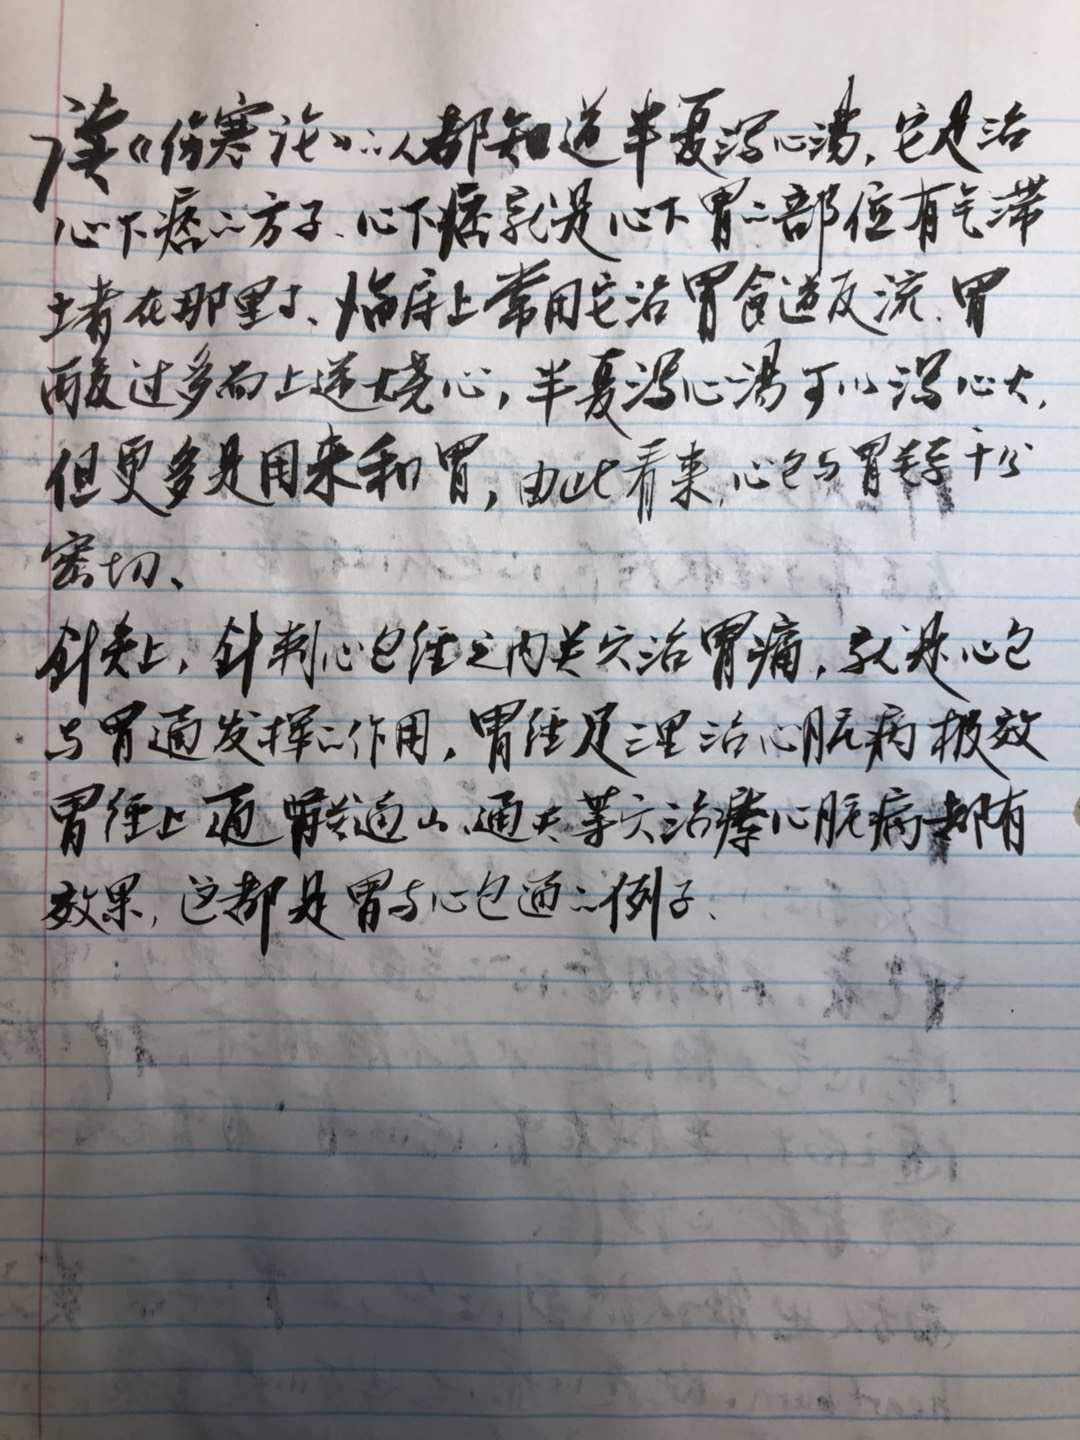 读《伤寒论》的人都知道半夏泻心汤,它是治
心下痞的方子、心下痞就是心下胃的部位有气滞
堵在那里了、临床上常用它治胃食道反流、胃
酸过多而上逆烧心,半夏泻心汤可以泻心火,
但更多是用来和胃,由此看来,心包与胃关系十分
密切、
针灸上,针刺心包经之内关穴治胃痛,就是心包
与胃通发挥的作用,胃经足三里治心脏病极效
胃经上通 通山、通天等穴治疗心脏病都有
效果,这都是胃与心包通的例子、